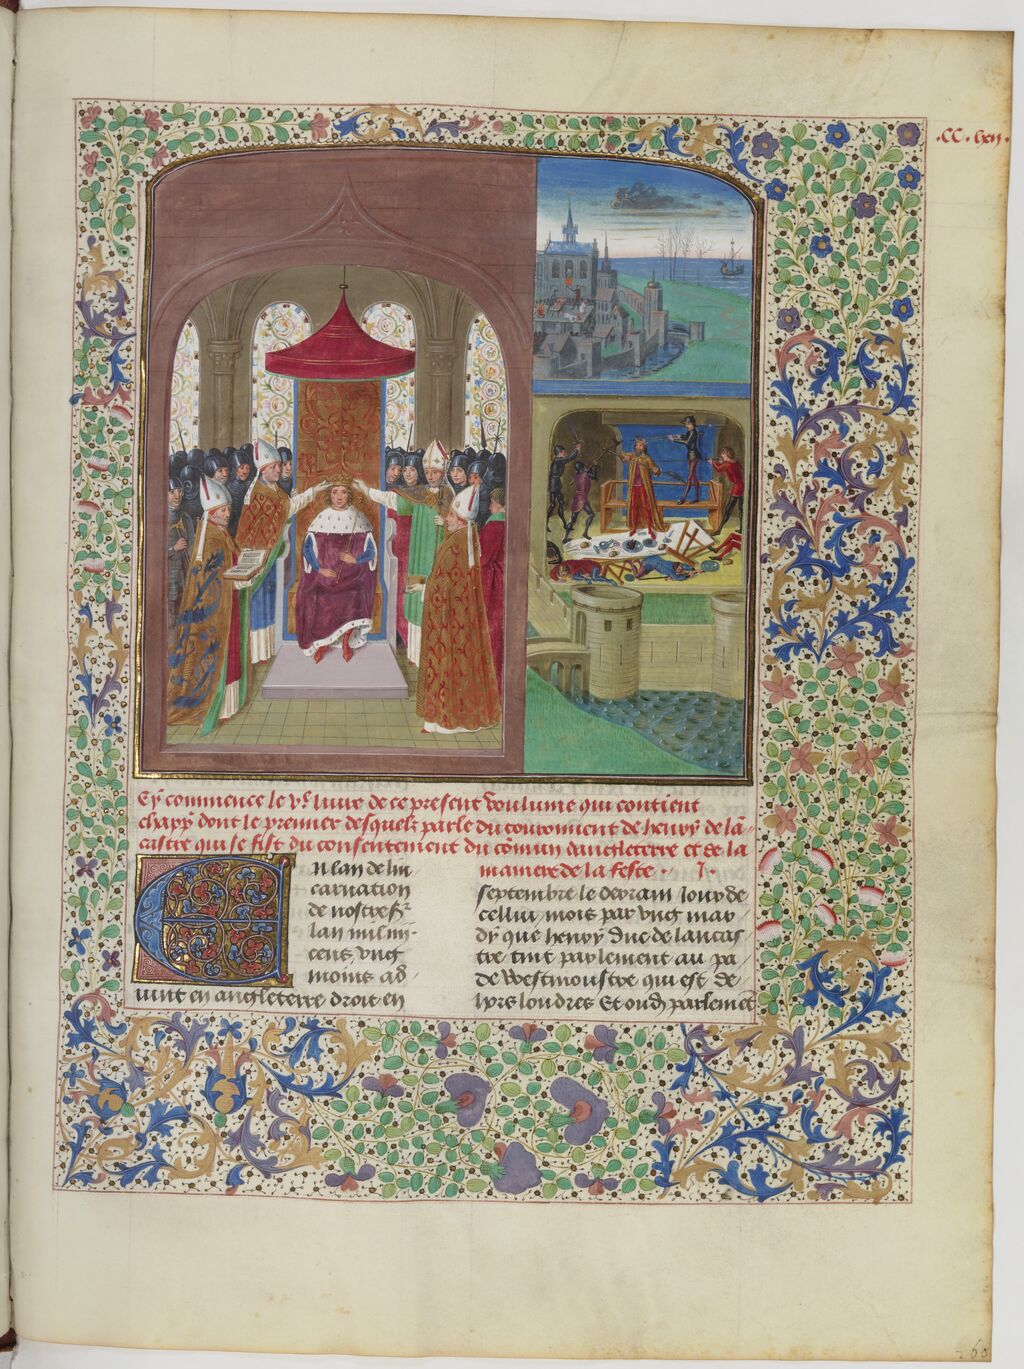 .CC. lxii.
Cy commence le vͤ. livre de ce present volume qui contient
chapp̄ dont le premier desquelz parle du couronnement de henry de lā-
castre qui se fist du consentement du cōmun dangleterre et de la
maniere de la feste. .j.
En lan de lin
carnation
de nostre sr̄
lan mil iiii-
cens vng
moins ad
vint en angleterre droit en
septembre le derrain jour de
cellui mois par vng mar-
dy que henry duc de lancas
tre tint parlement au pa-
de Westmoustre qui est de
hors londres Et oud parlemēt
260